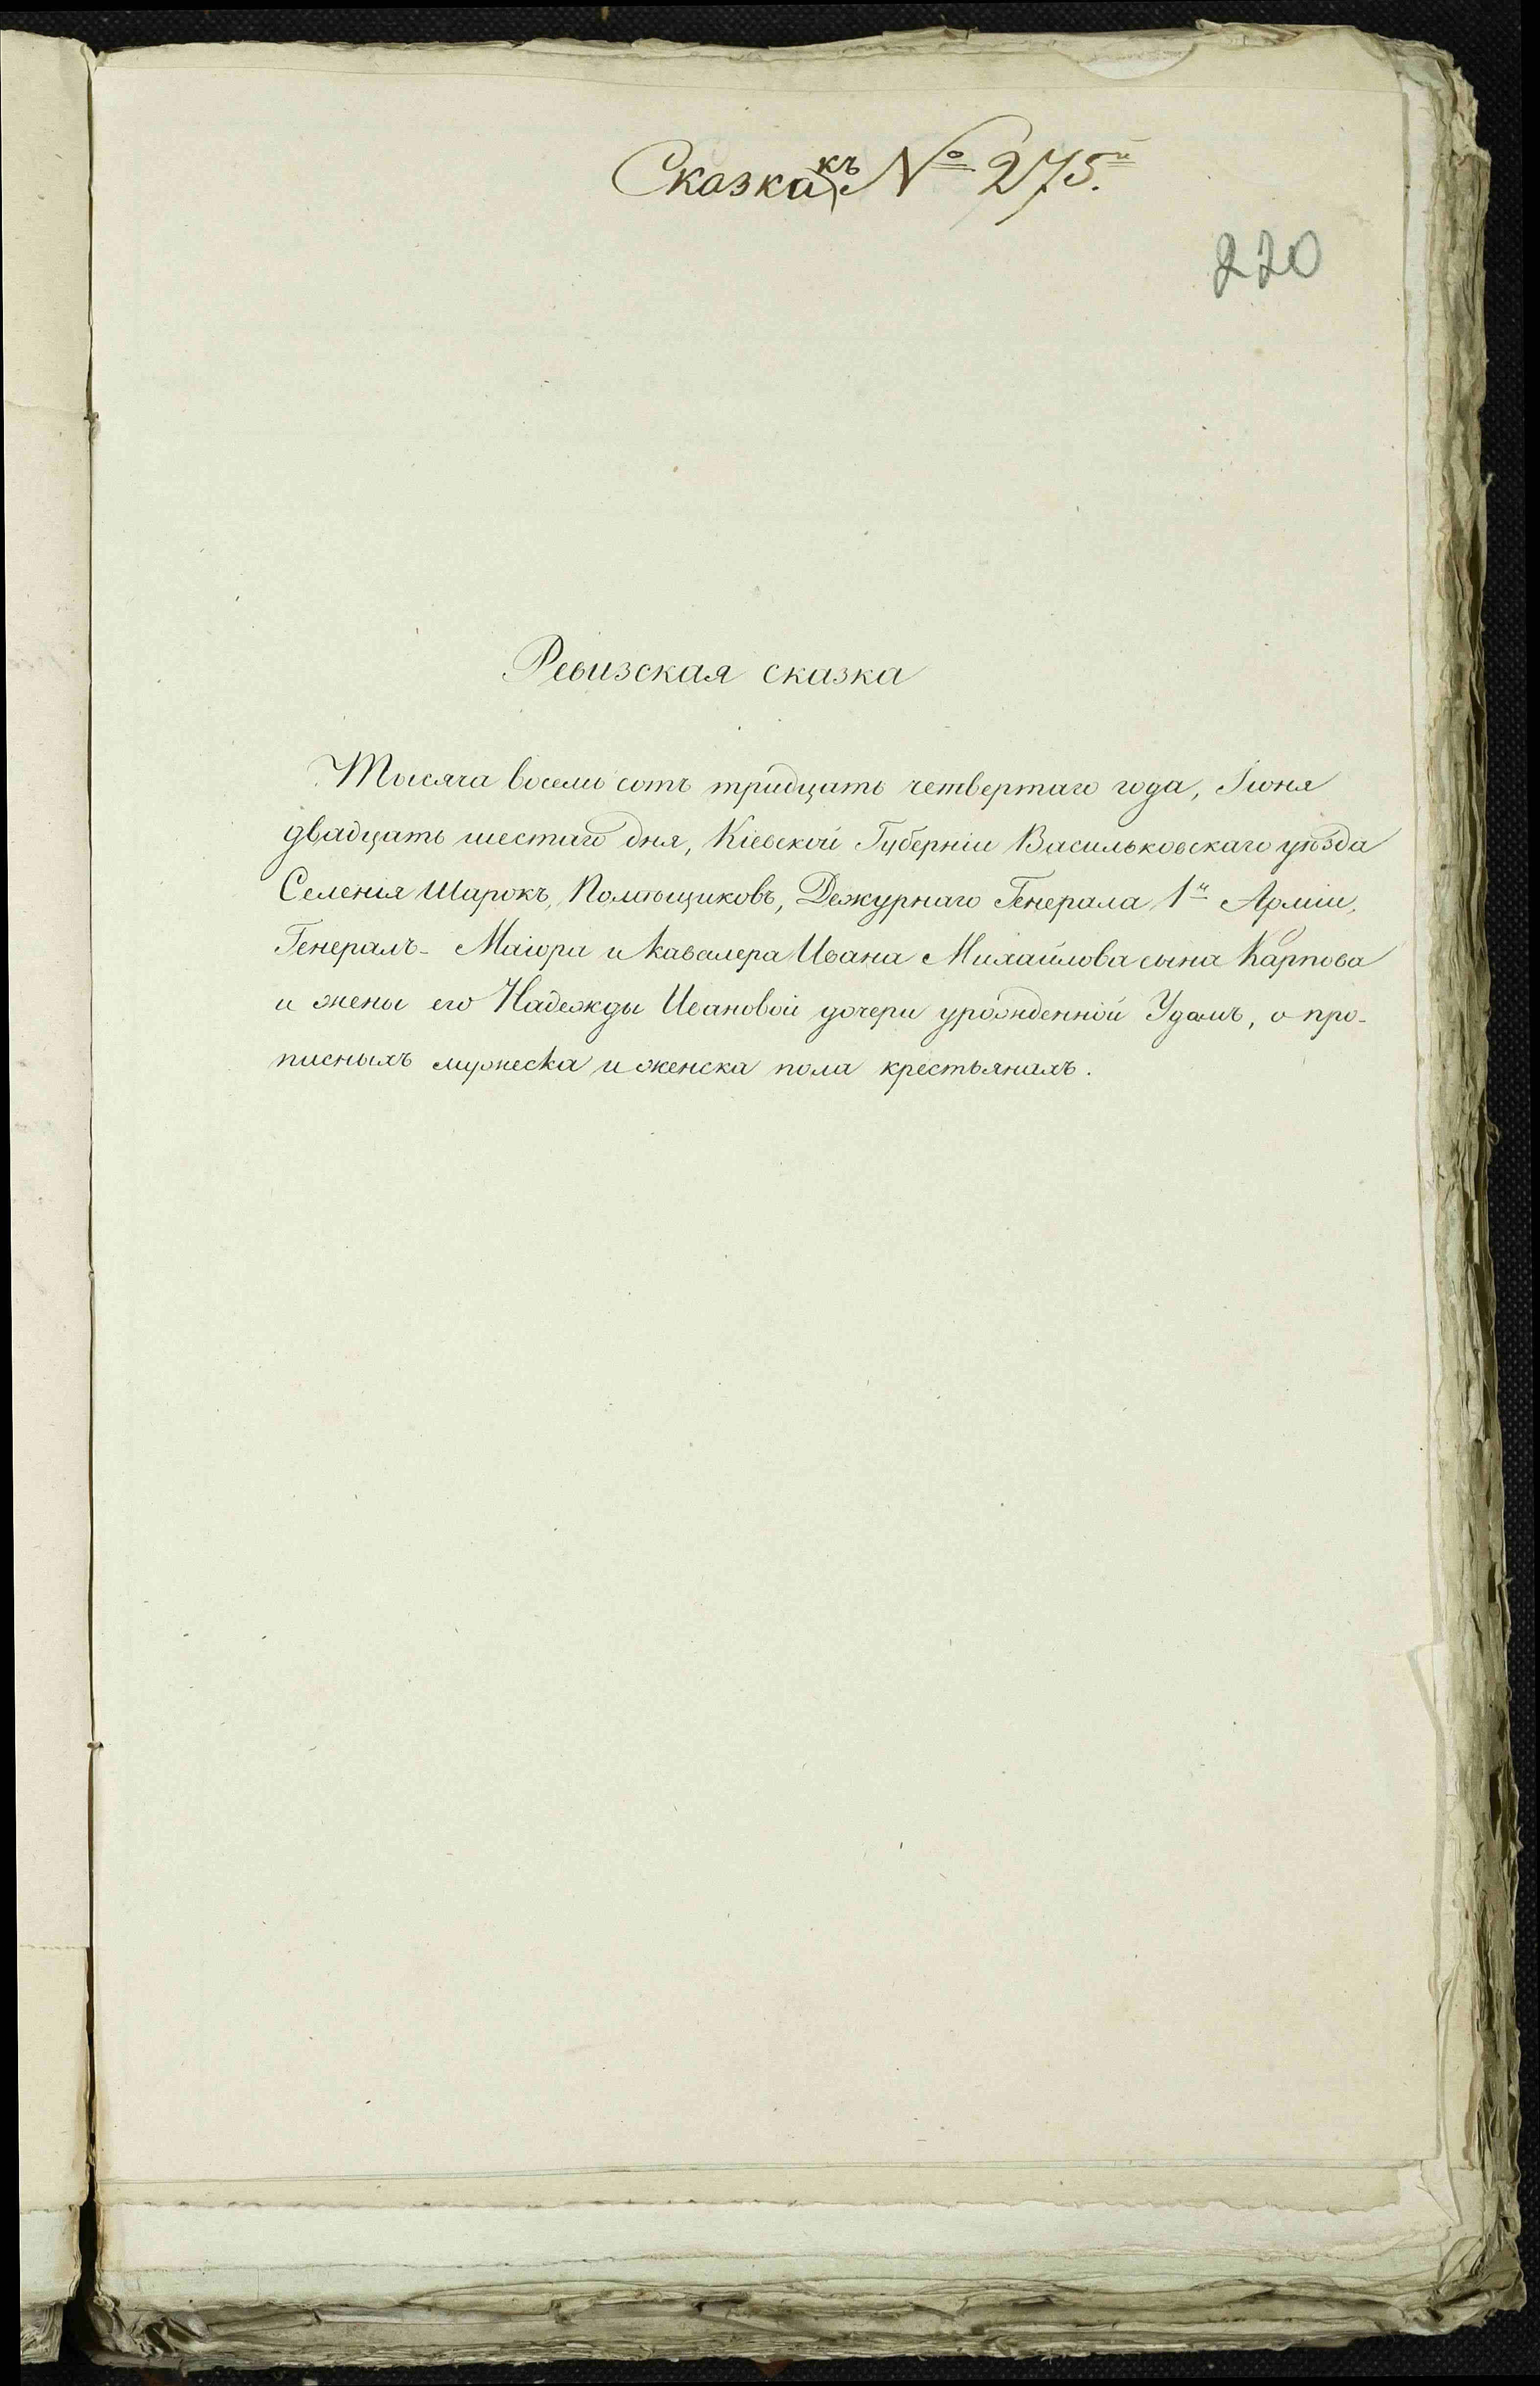 Сказка къ № 275й.
220
Ревизская сказка
Тысяча восемь сотъ тридцать четвертаго года, Іюня
двадцать шестаго дня, Кіевской Губерніи Васильковскаго уѣзда
Селенія Шарокъ, Помѣщиковъ, Дежурнаго Генерала 1й Арміи,
Генералъ- Маіора и Кавалера Ивана Михайлова сына Карпова
и жены его Надежды Ивановой дочери урожденной Удомъ, о про-
писныхъ мужеска и женска пола крестьянахъ.